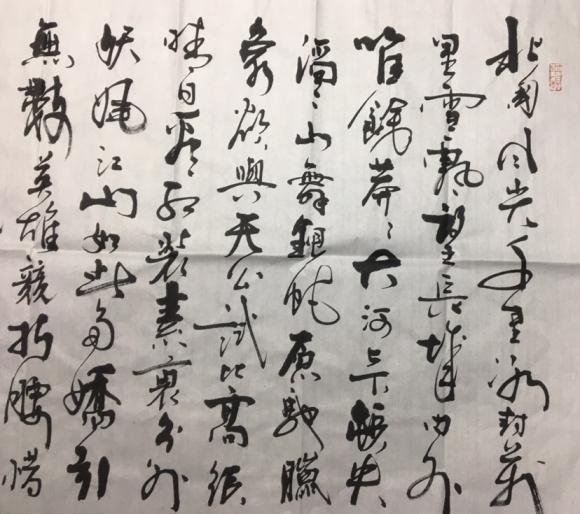 北國风光千里冰封萬
里雪飄望長城内外
唯餘莽々大河上下頓失
滔々山舞銀蛇原馳臘
象欲與天公試比高須
晴日看紅裝素裹分外
妖嬈江山如此多嬌引
無數英雄競折腰惜